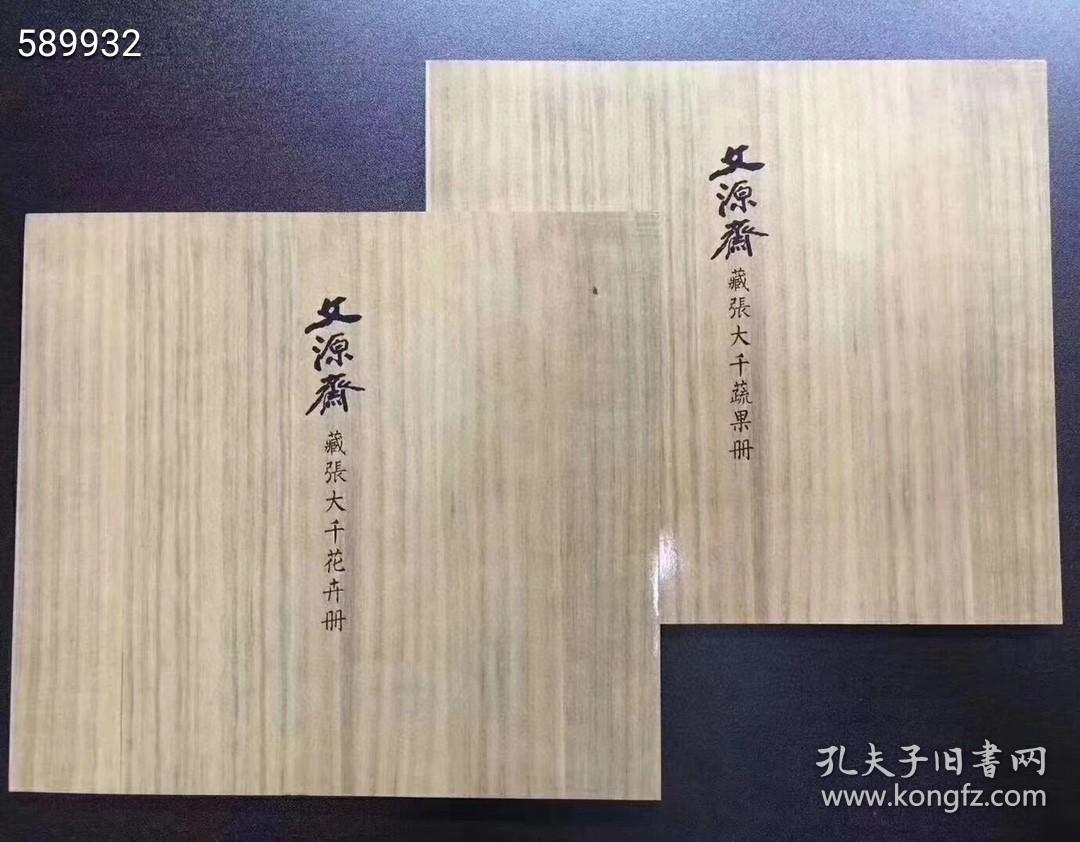 589932
文源齋
藏張大千花卉冊
文源齋
藏張大千蔬果冊
孔夫子旧書网
www.kongfz.com